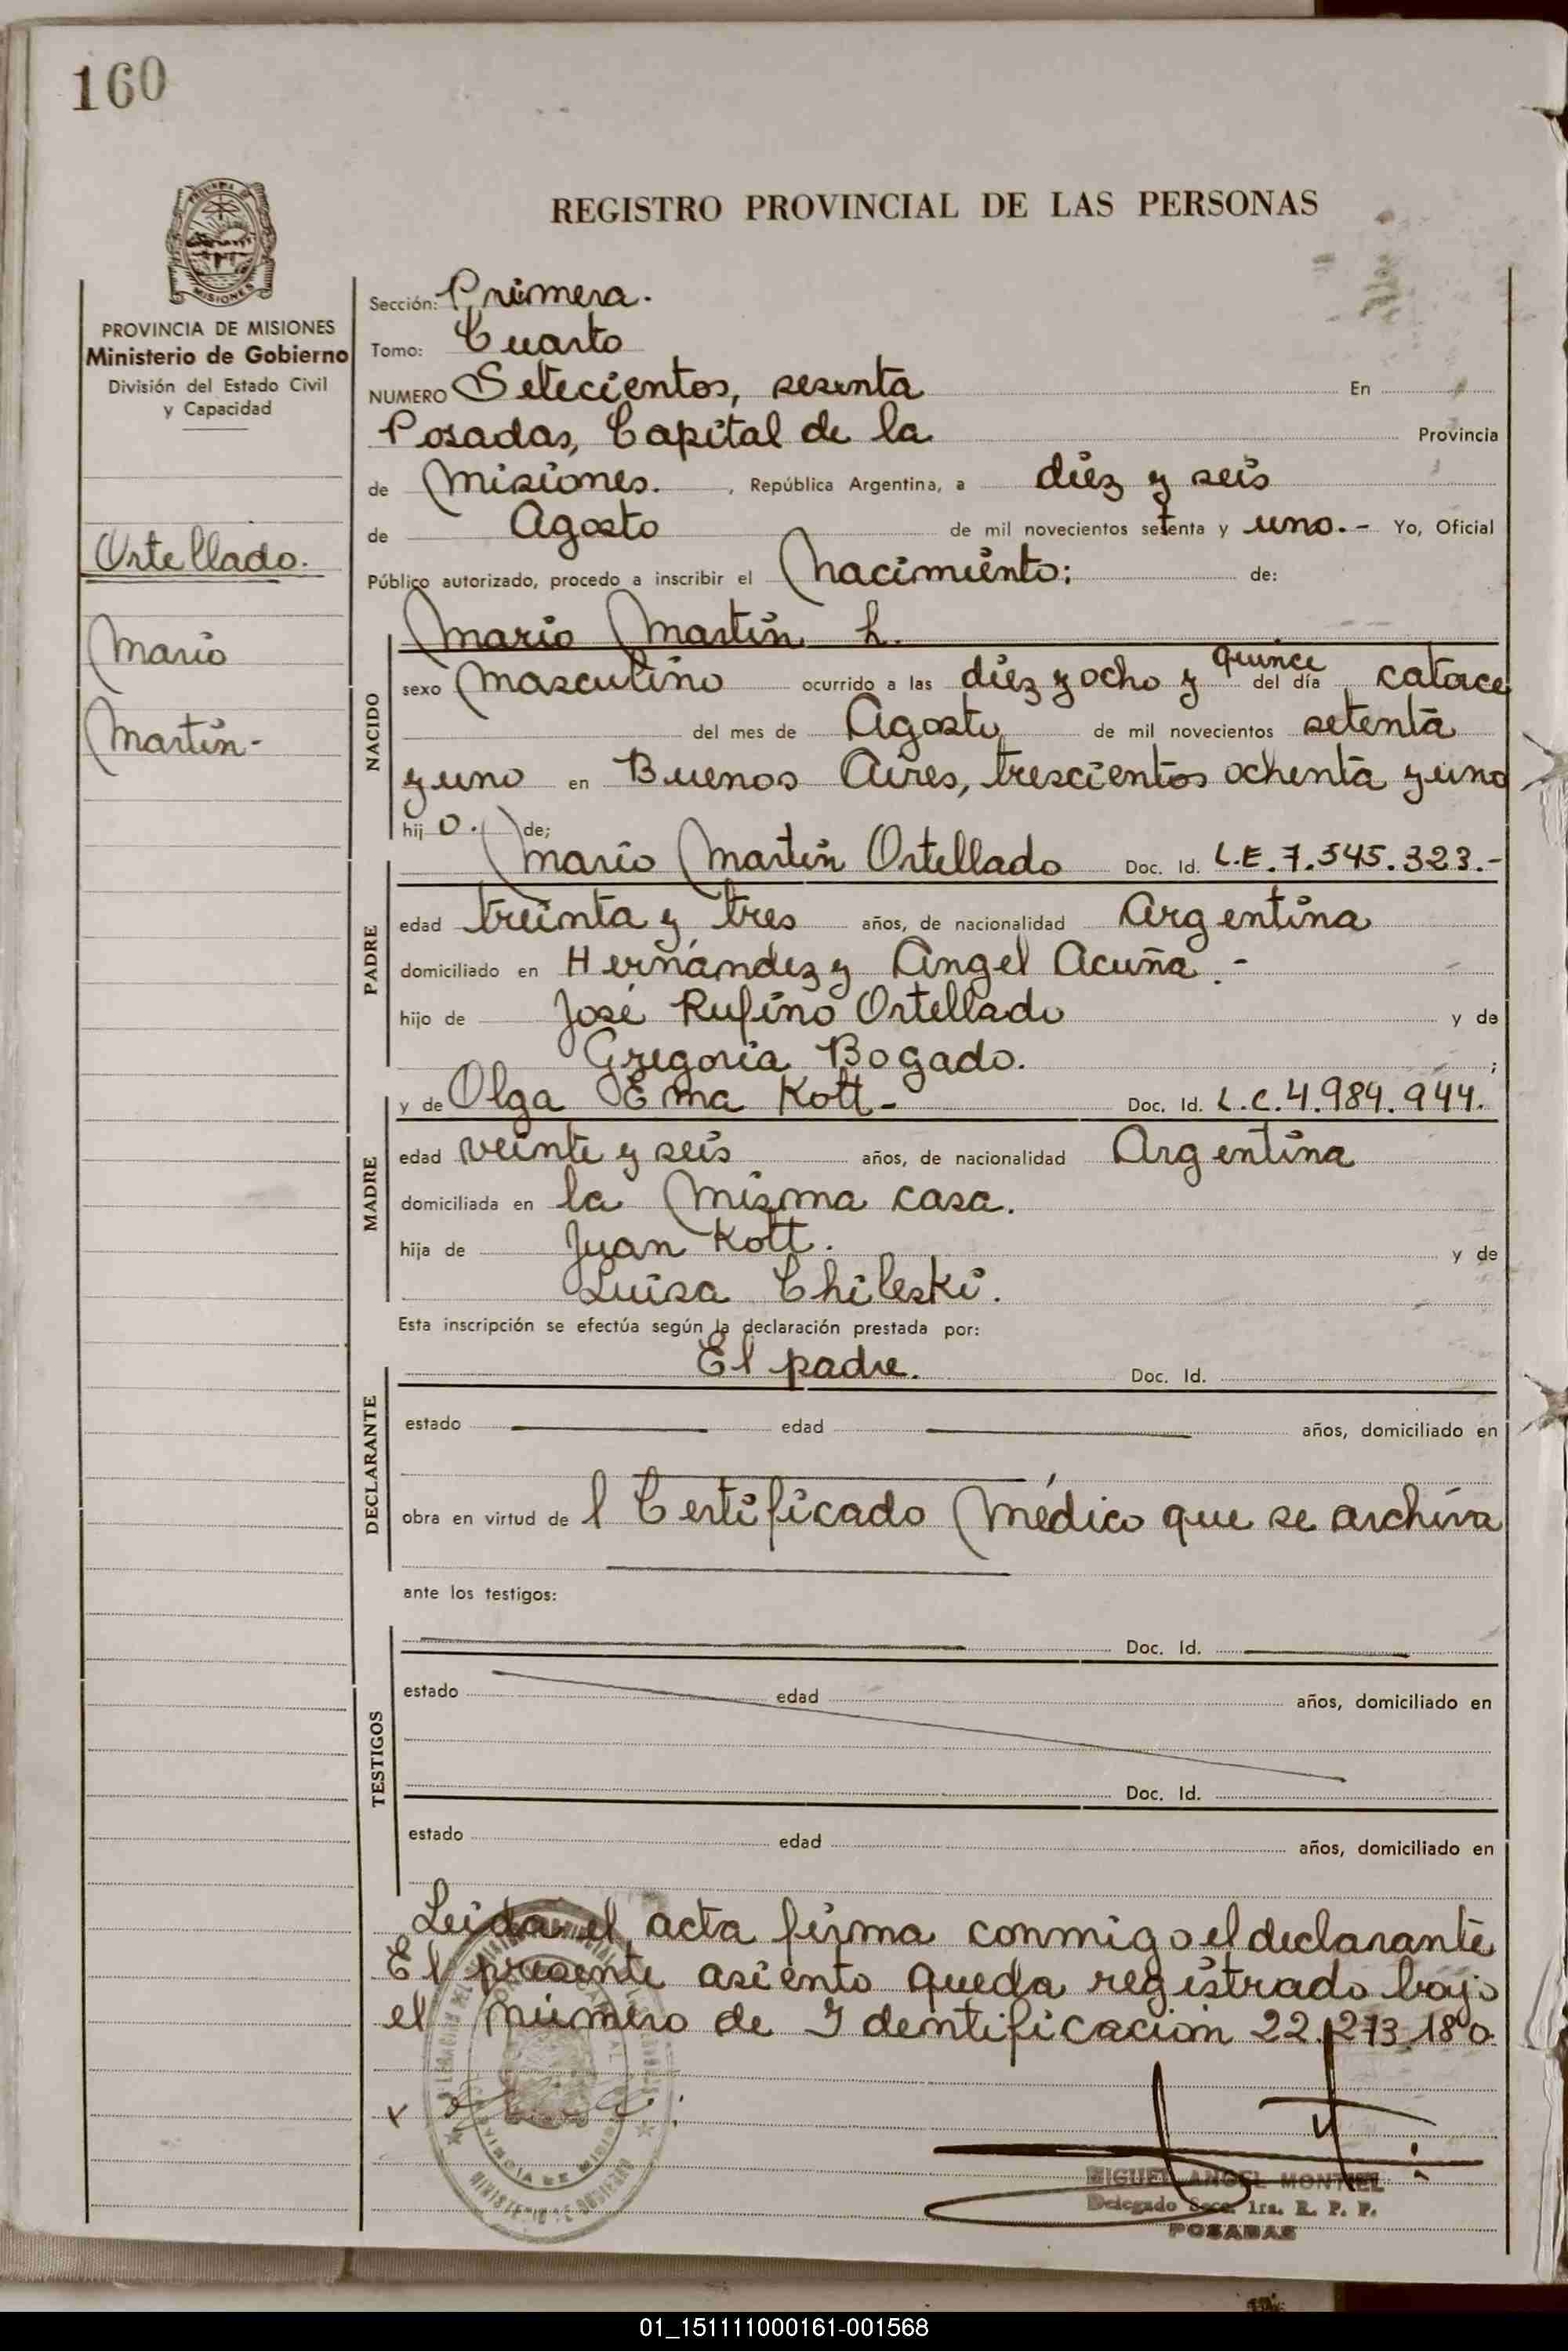 160
REGISTRO PROVINCIAL DE LAS PERSONAS
MISIONES
PROVINCIA DE MISIONES
Ministerio de Gobierno
División del Estado Civil
y Capacidad
Ortellado.
Mario
Martin-
Sección: Primera.
Tomo: Cuarto
NUMERO Setecientos, sesenta En
Posadas, Capital de la Provincia
de Misiones. , República Argentina, a diez y seis
de Agosto de mil novecientos setenta y uno.- Yo, Oficial
Público autorizado, procedo a inscribir el Nacimiento: de:
NACIDO
Mario Martin h.
sexo Masculino ocurrido a las diez y ocho y quince del día catorce
del mes de Agosto de mil novecientos setenta
y uno en Buenos Aires, trescientos ochenta y uno
hij o. de;
PADRE
Mario Martin Ortellado Doc. Id. L.E. 7.545.323.-
edad treinta y tres años, de nacionalidad Argentina
domiciliado en Hernández y Angel Acuña.-
hijo de José Rufino Ortellado y de
Gregoria Bogado. ;
MADRE
y de Olga Ema Kott- Doc. Id. L.C. 4.984.944.
edad veinte y seis años, de nacionalidad Argentina
domiciliada en la misma casa.
hija de Juan Kott. y de
Luisa Chileski.
Esta inscripción se efectúa según la declaración prestada por:
DECLARANTE
El padre. Doc. Id.
estado edad años, domiciliado en
obra en virtud de l Certificado Médico que se archiva
ante los testigos:
TESTIGOS
Doc. Id.
estado edad años, domiciliado en
Doc. Id.
estado edad años, domiciliado en
Leida el acta firma conmigo el declarante
El presente asiento queda registrado bajo
el número de Identificación 22.273.180.
MIGUEL ANGEL MONTIEL
Delegado Secc. 1ra. R. P. P.
POSADAS
01_151111000161-001568